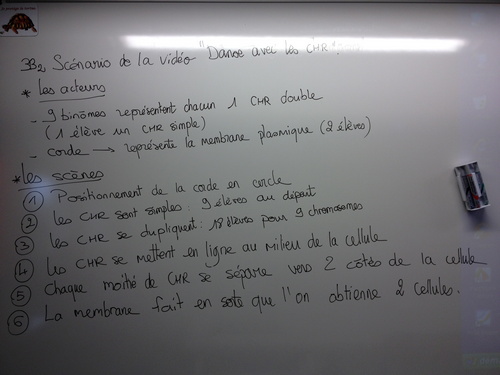 3B2 Scénario de la vidéo "Danse avec les CHR"
* les acteurs
- 9 binômes représentent chacun 1 CHR double
(1 élève un CHR simple)
- corde → représente la membrane plasmique (2 élèves)
* les scènes
① Positionnement de la corde en cercle
② les CHR sont simples : 9 élèves au départ
③ les CHR se dupliquent : 18 élèves pour 9 chromosomes
④ Les CHR se mettent en ligne au milieu de la cellule
⑤ Chaque moitié de CHR se sépare vers 2 côtés de la cellule
⑥ La membrane fait en sorte que l'on obtienne 2 cellules.